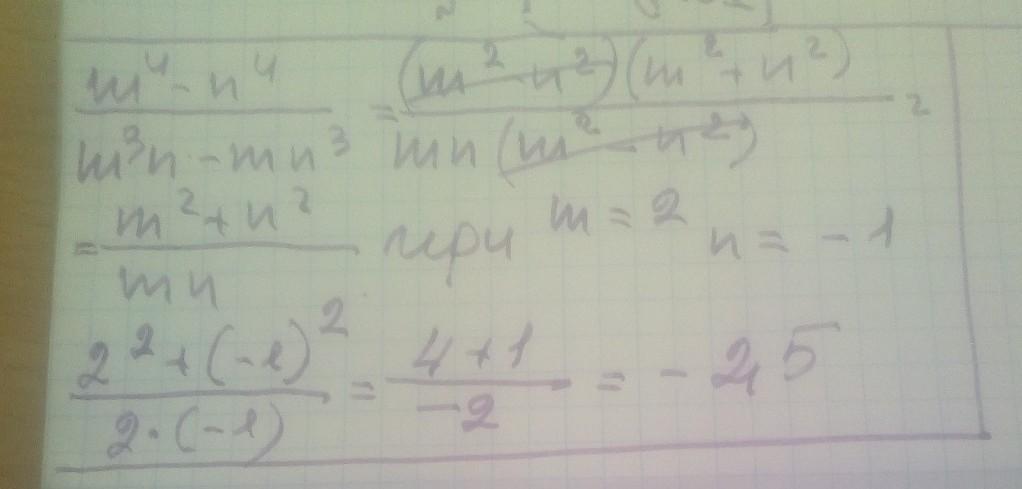 m⁴ - n⁴ / m³n - mn³ = (m² - n²)(m² + n²) / mn(m² - n²) =
= m² + n² / mn при m = 2 n = -1
2² + (-1)² / 2·(-1) = 4 + 1 / -2 = -2,5